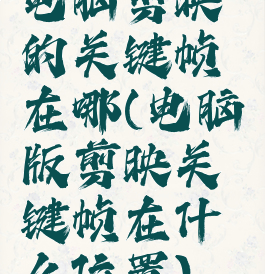 电脑剪映
的关键帧
在哪(电脑
版剪映关
键帧在什
么位置)